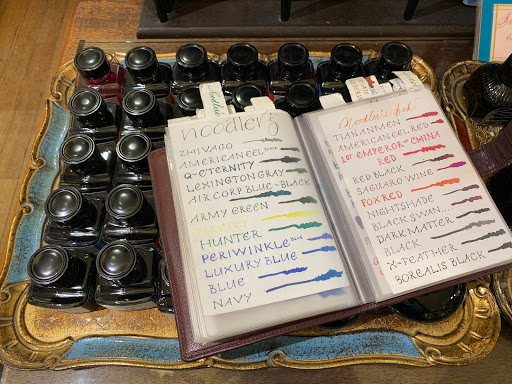 noodler's
ZHIVAGO
AMERICAN EEL BLACK
Q-ETERNITY
LEXINGTON GRAY
AIR CORP BLUE-BLACK
ARMY GREEN
HUNTER
PERIWINKLE
LUXURY BLUE
BLUE
NAVY
Noodler's Ink
TIANANMEN
AMERICAN EEL RED
1ST EMPEROR OF CHINA
RED
RED BLACK
SAGUARO WINE
FOXRED
NIGHTSHADE
BLACK SWAN...
DARK MATTER
BLACK
X-FEATHER
BOREALIS BLACK